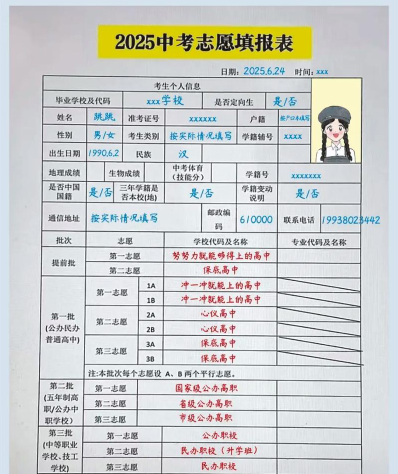 2025中考志愿填报表
日期: 2025.6.24 时间: xxx
考生个人信息
毕业学校及代码 xxx学校 是否定向生 是/否
姓名 跳跳 准考证号 xxxxxx 户籍 按户口本填写
性别 男/女 考生类别 按实际情况填写 学籍辅号 xxxx
出生日期 1990.6.2 民族 汉
地理成绩 生物成绩 中考体育(技能分) 学籍号 xxxxxxx
是否中国国籍 是/否 三年学籍是否本校(地) 是/否 学籍变动说明 是/否
通信地址 按实际情况填写 邮政编码 610000 联系电话 19938023442
批次 志愿 学校代码及名称 专业代码及名称
提前批 第一志愿 努努力就能够得上的高中
第二志愿 保底高中
第一批(公办民办普通高中) 第一志愿 1A 冲一冲就能上的高中
1B 冲一冲就能上的高中
第二志愿 2A 心仪高中
2B 心仪高中
第三志愿 3A 保底高中
3B 保底高中
注:本批次每个志愿设 A、B 两个平行志愿。
第二批(五年制高职/公办中职学校) 第一志愿 国家级公办高职
第二志愿 省级公办高职
第三志愿 市级公办高职
第三批(中等职业学校、技工学校) 第一志愿 公办职校
第二志愿 民办职校(升学班)
第三志愿 民办职校